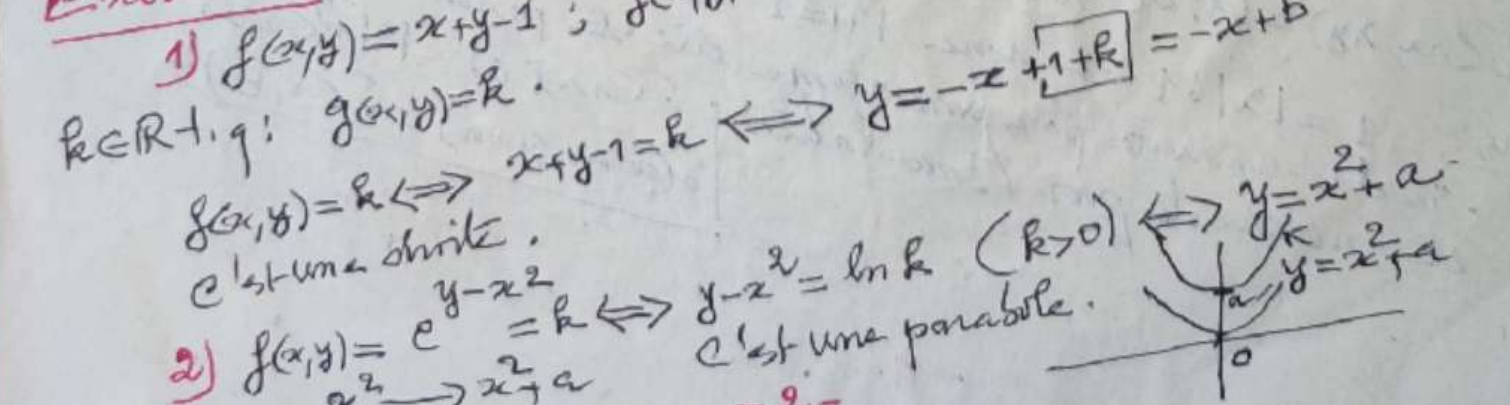 1) f(x,y) = x+y-1 ;
k∈ℝ t.q: g(x,y)=k.
f(x,y)=k ⟺ x+y-1=k ⟺ y=-x+1+k = -x+b
C'est une droite.
2) f(x,y)= e^{y-x^2} = k ⟺ y-x^2 = ln k (k>0) ⟺ y=x^2+a
C'est une parabole.
y=x^2+a
a
0
x^2 → x^2+a